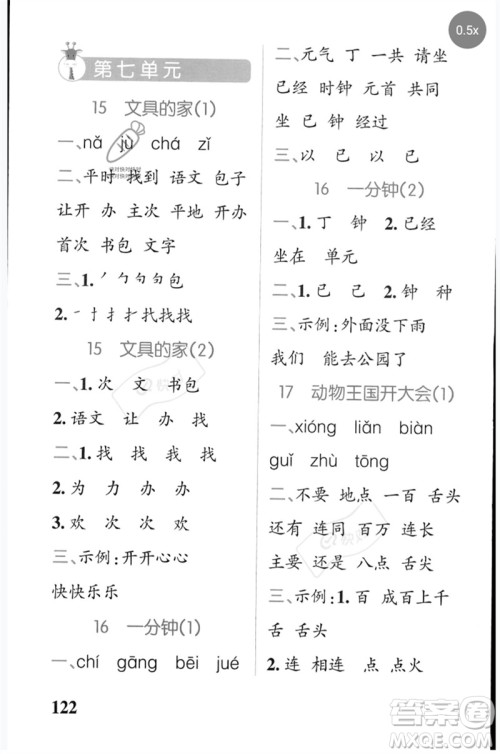 第七单元
15 文具的家(1)
一、nǎ jù chá zǐ
二、平时 找到 语文 包子
让开 办 主次 平地 开办
首次 书包 文字
三、1.丿 勹 勹 句 包
2.一 十 扌 扩 扰 找 找
15 文具的家(2)
一、1.次 文 书包
2.语文 让 办 找
二、1.找 找 我 我
2.为 力 办 办
3.欢 欢 次 次
三、示例:开开心心
快快乐乐
16 一分钟(1)
一、chí gāng bēi jué
122
二、元气 丁 一共 请坐
已经 时钟 元首 共同
坐 丁 钟 经过
三、以 已 以 已
16 一分钟(2)
一、1.丁 钟 2.已经
坐在 单元
二、1.已 已 2.钟 种
三、示例:外面没下雨
我们 能去公园了
17 动物王国开大会(1)
一、xióng liǎn biàn
guǐ zhù tōng
二、不要 地点 一百 舌头
还有 连同 百万 连长
主要 还是 八点 舌尖
三、1.示例:百 成百上千
舌 舌头
2.连 相连 点 点火
0.5x
答案圈
MXQE.COM